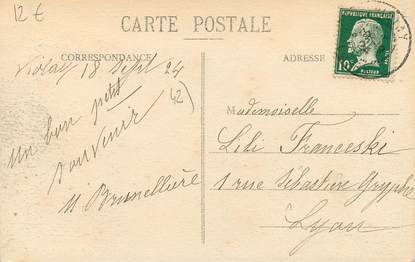 12 €
CARTE POSTALE
CORRESPONDANCE
ADRESSE
REPUBLIQUE FRANÇAISE
10c
Violay 18 Sept 24
(42)
Un bon petit
souvenir
M Brunellière
Mademoiselle
Lili Franceski
1 rue Sébastien Gryphe
Lyon